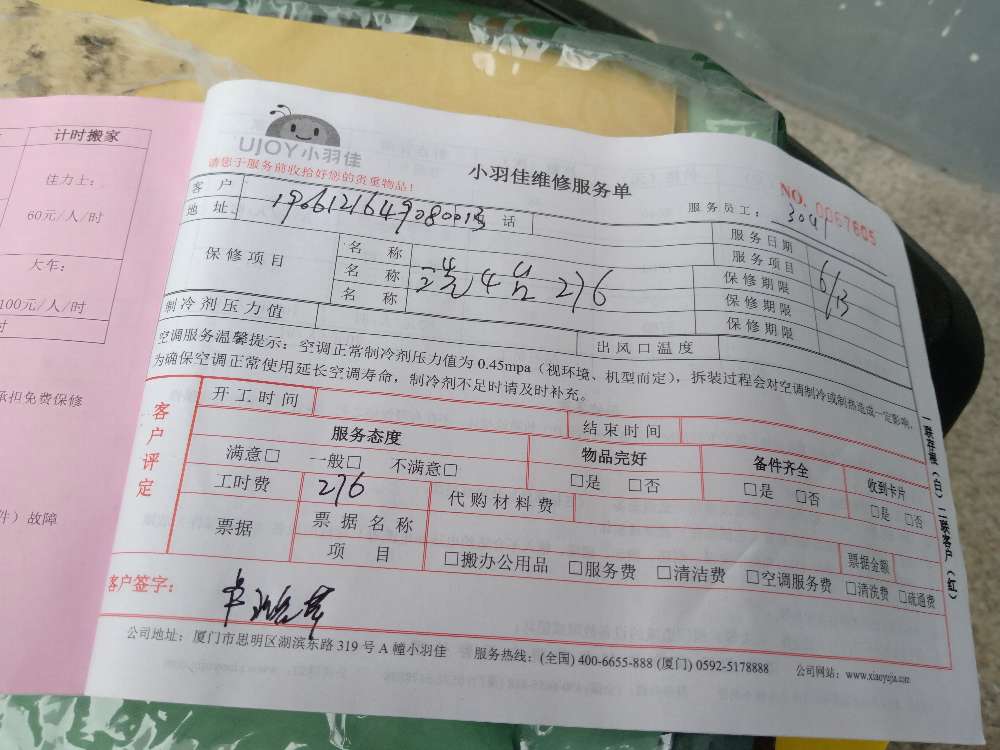 计时搬家
佳力士：
60元/人/时
大车：
100元/人/时
时
承担免费保修
件）故障
UJOY小羽佳
请您于服务前收拾好您的贵重物品！
小羽佳维修服务单
NO. 0067605
客户 服务员工：304
地址 190612164908001 话 服务日期
保修项目 名称 服务项目 6/13
名称 276 保修期限
名称 保修期限
制冷剂压力值 出风口温度 保修期限
空调服务温馨提示：空调正常制冷剂压力值为0.45mpa（视环境、机型而定），拆装过程会对空调制冷或制热造成一定影响，
为确保空调正常使用延长空调寿命，制冷剂不足时请及时补充。
客户评定
开工时间 结束时间
服务态度 物品完好 备件齐全 收到卡片
满意□ 一般□ 不满意□ □是 □否 □是 □否 □是 □否
工时费 276 代购材料费
票据 票据名称 票据金额
项目 □搬办公用品 □服务费 □清洁费 □空调服务费 □清洗费 □疏通费
客户签字：
一联存根（白）二联客户（红）
公司地址：厦门市思明区湖滨东路319号A幢小羽佳 服务热线：(全国) 400-6655-888 (厦门) 0592-5178888 公司网站：www.xiaoyujia.com